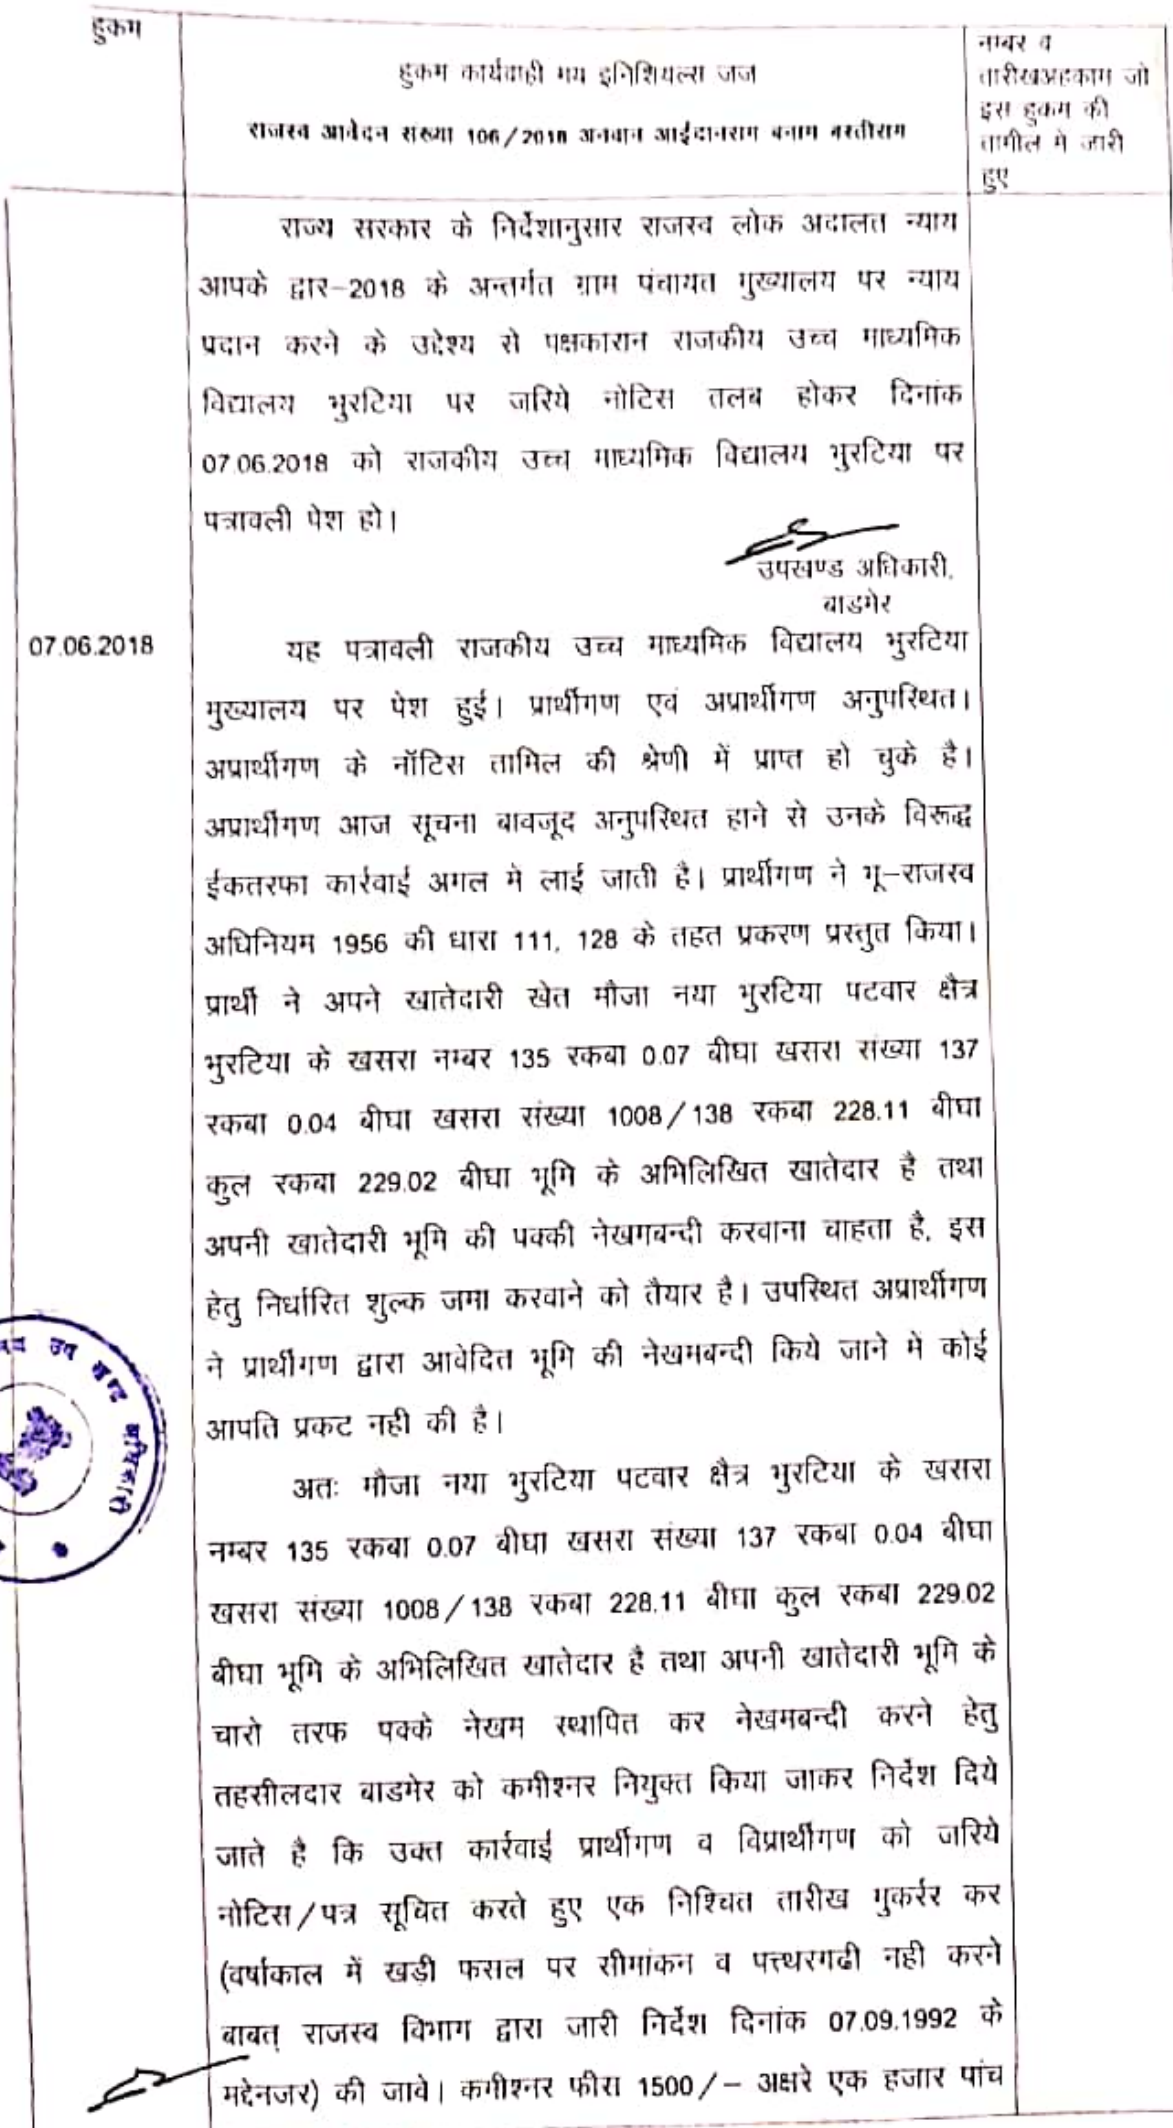 हुकम
हुकम कार्यवाही मय इनिशियल्स जज
राजस्व आवेदन संख्या 106/2018 अनवान आईदानराम बनाम बस्तीराम
नम्बर व
तारीखअहकाम जो
इस हुकम की
तामील मे जारी
हुए
राज्य सरकार के निर्देशानुसार राजस्व लोक अदालत न्याय
आपके द्वार-2018 के अन्तर्गत ग्राम पंचायत मुख्यालय पर न्याय
प्रदान करने के उद्देश्य से पक्षकारान राजकीय उच्च माध्यमिक
विद्यालय भुरटिया पर जरिये नोटिस तलब होकर दिनांक
07.06.2018 को राजकीय उच्च माध्यमिक विद्यालय भुरटिया पर
पत्रावली पेश हो।
उपखण्ड अधिकारी,
बाडमेर
07.06.2018
यह पत्रावली राजकीय उच्च माध्यमिक विद्यालय भुरटिया
मुख्यालय पर पेश हुई। प्रार्थीगण एवं अप्रार्थीगण अनुपस्थित।
अप्रार्थीगण के नॉटिस तामिल की श्रेणी में प्राप्त हो चुके है।
अप्रार्थीगण आज सूचना बावजूद अनुपस्थित हाने से उनके विरूद्ध
ईकतरफा कार्रवाई अमल मे लाई जाती है। प्रार्थीगण ने भू-राजस्व
अधिनियम 1956 की धारा 111, 128 के तहत प्रकरण प्रस्तुत किया।
प्रार्थी ने अपने खातेदारी खेत मौजा नया भुरटिया पटवार क्षैत्र
भुरटिया के खसरा नम्बर 135 रकबा 0.07 बीघा खसरा संख्या 137
रकबा 0.04 बीघा खसरा संख्या 1008/138 रकबा 228.11 बीघा
कुल रकबा 229.02 बीघा भूमि के अभिलिखित खातेदार है तथा
अपनी खातेदारी भूमि की पक्की नेखमबन्दी करवाना चाहता है, इस
हेतु निर्धारित शुल्क जमा करवाने को तैयार है। उपस्थित अप्रार्थीगण
ने प्रार्थीगण द्वारा आवेदित भूमि की नेखमबन्दी किये जाने में कोई
आपति प्रकट नही की है।
अतः मौजा नया भुरटिया पटवार क्षैत्र भुरटिया के खसरा
नम्बर 135 रकबा 0.07 बीघा खसरा संख्या 137 रकबा 0.04 बीघा
खसरा संख्या 1008/138 रकबा 228.11 बीघा कुल रकबा 229.02
बीघा भूमि के अभिलिखित खातेदार है तथा अपनी खातेदारी भूमि के
चारो तरफ पक्के नेखम स्थापित कर नेखमबन्दी करने हेतु
तहसीलदार बाडमेर को कमीश्नर नियुक्त किया जाकर निर्देश दिये
जाते है कि उक्त कार्रवाई प्रार्थीगण व विप्रार्थीगण को जरिये
नोटिस/पत्र सूचित करते हुए एक निश्चित तारीख मुकर्रर कर
(वर्षाकाल में खड़ी फसल पर सीमांकन व पत्थरगढी नही करने
बाबत् राजस्व विभाग द्वारा जारी निर्देश दिनांक 07.09.1992 के
मद्देनजर) की जावे। कमीश्नर फीस 1500/- अक्षरे एक हजार पांच
उप खण्ड अधिकारी